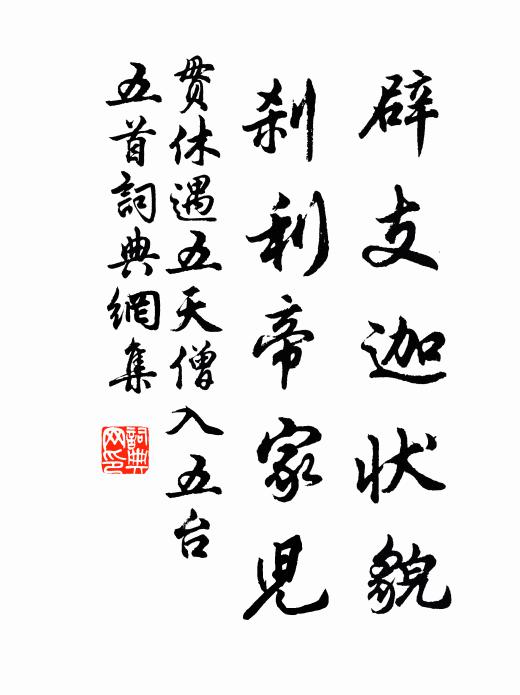 辟支迦状貌
刹利帝家兒
贯休遇五天僧入五台
五首詞典網集
詞典网印